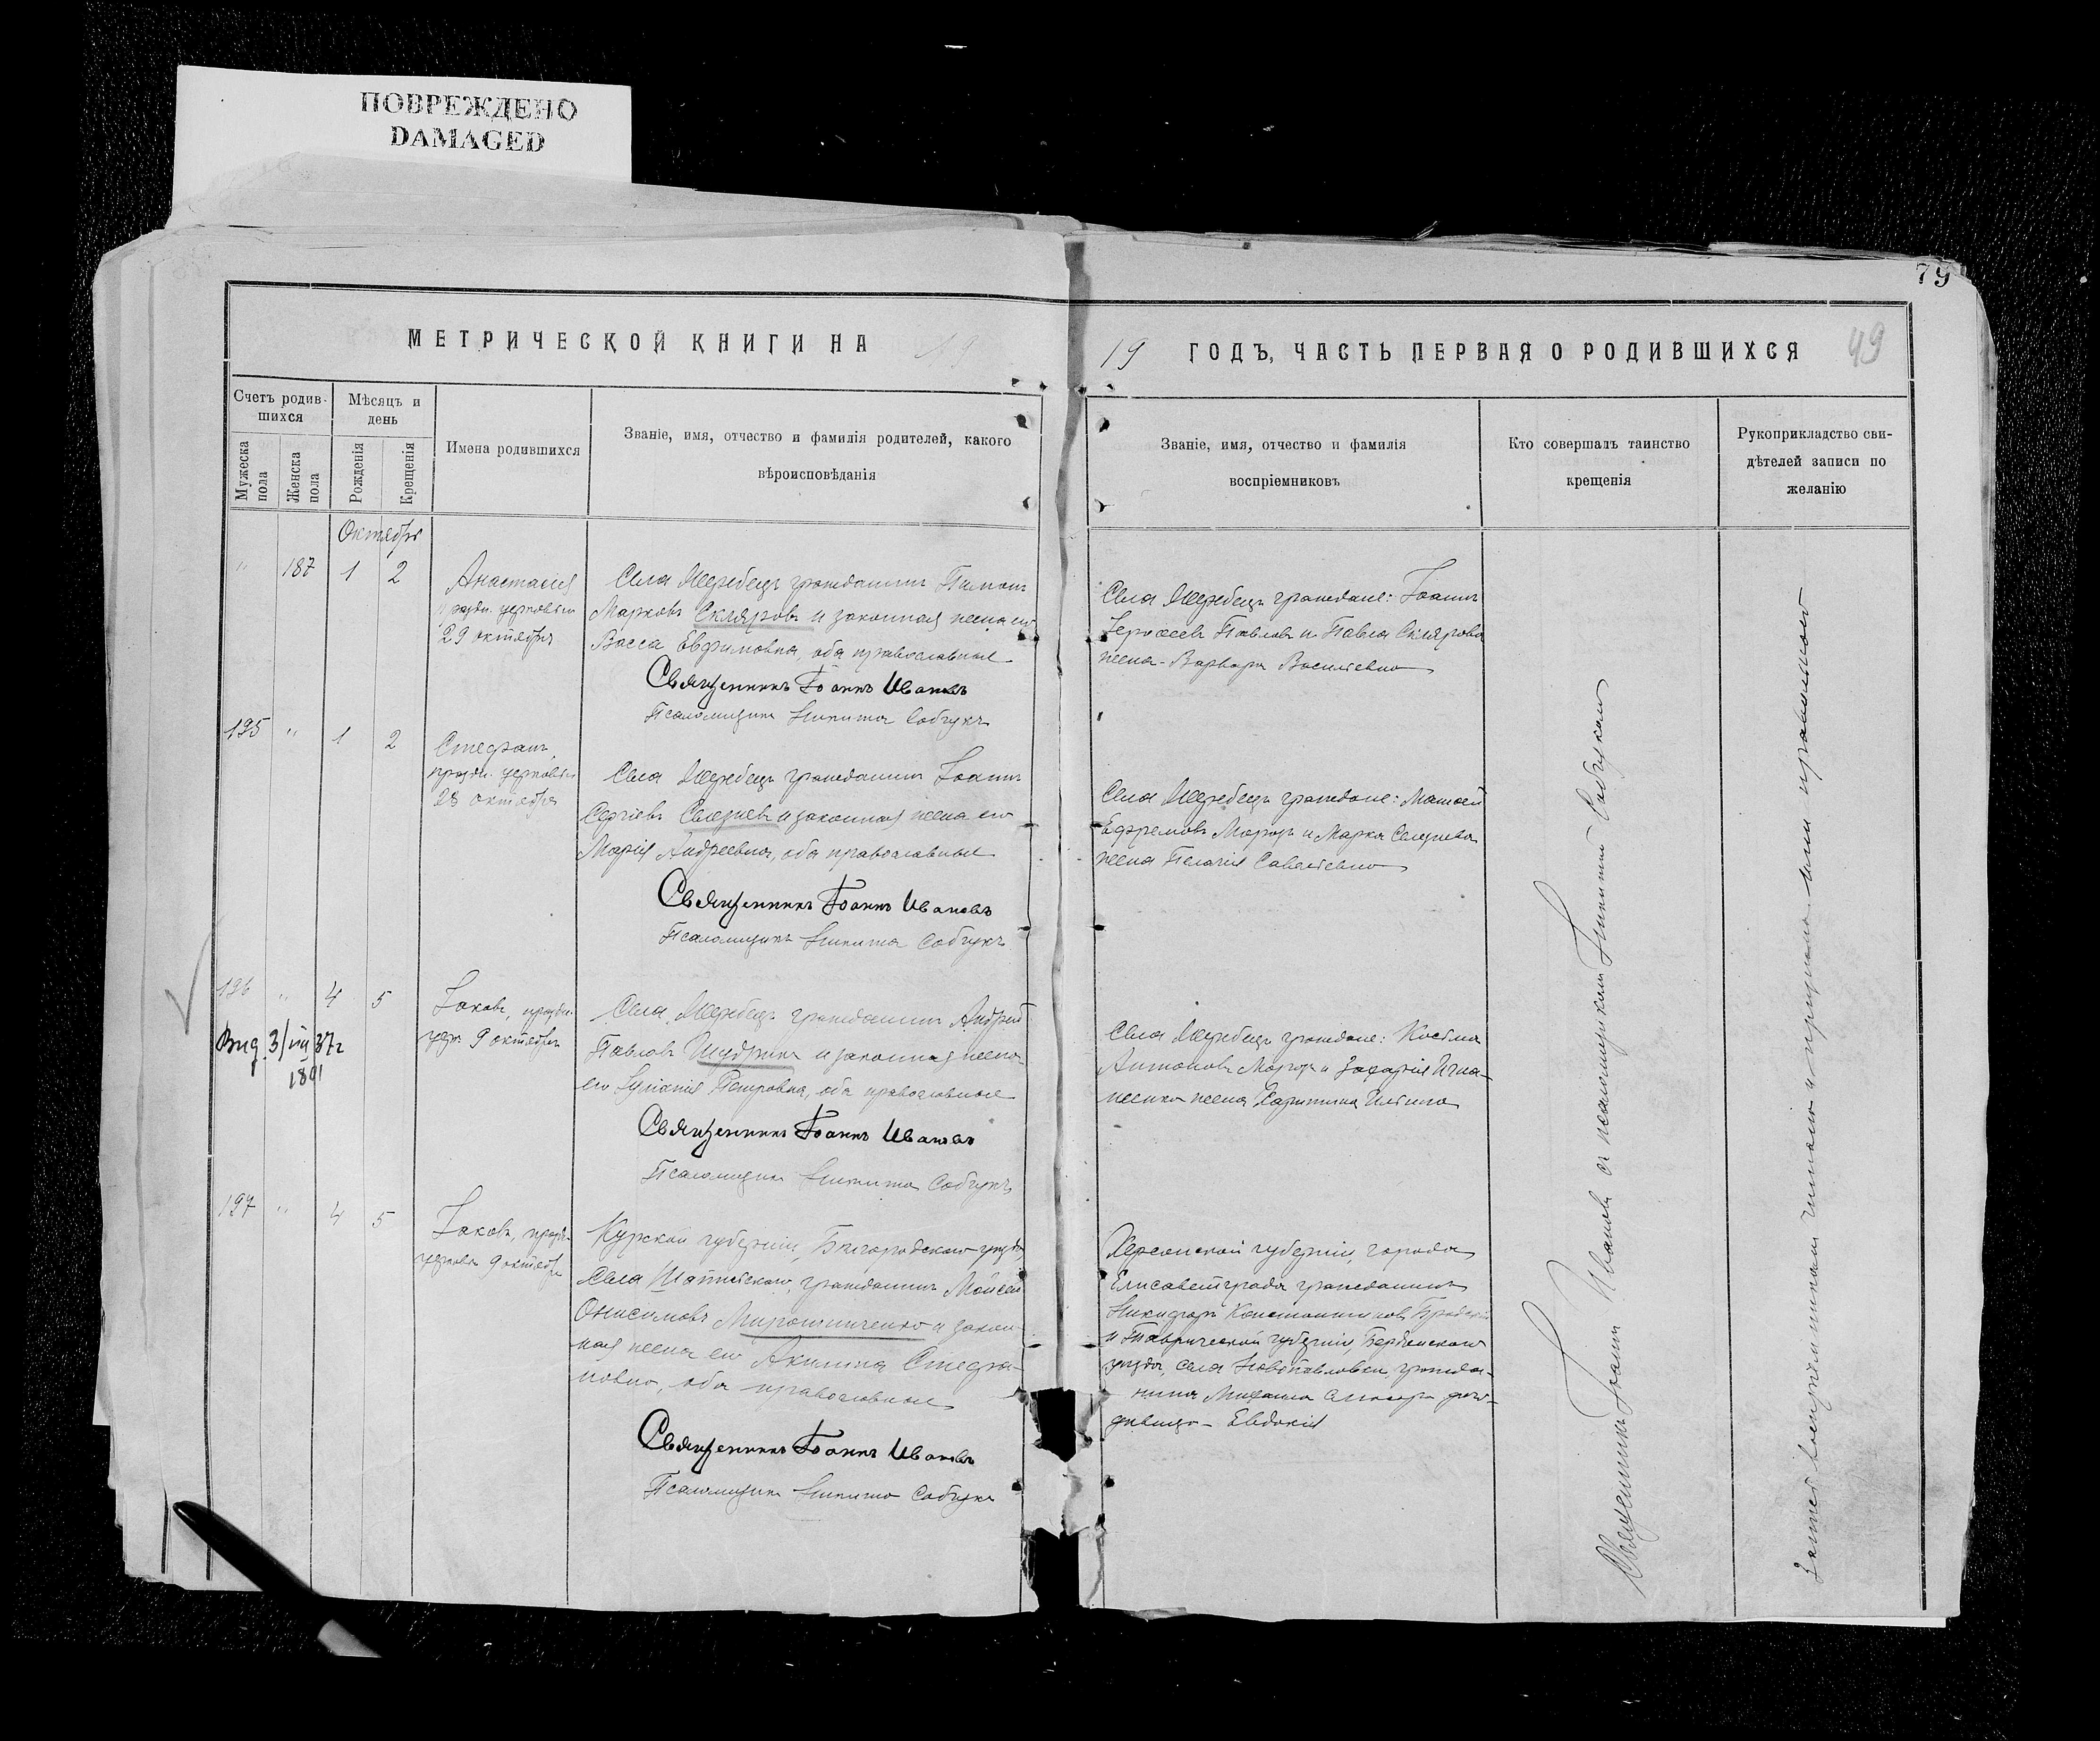 ПОВРЕЖДЕНО
DAMAGED
79
МЕТРИЧЕСКОЙ КНИГИ НА
19 ГОДЪ, ЧАСТЬ ПЕРВАЯ О РОДИВШИХСЯ
49
Счетъ родив-
шихся
Мѣсяцъ и
день
Мужеска
пола
Женска
пола
Рожденія
Крещенія
Имена родившихся
Званіе, имя, отчество и фамилія родителей, какого
вѣроисповѣданія
Званіе, имя, отчество и фамилія
воспріемниковъ
Кто совершалъ таинство
крещенія
Рукоприкладство сви-
дѣтелей записи по
желанію
Октябрь
" 187 1 2
Анастасія
праздн. церковью
29 октября
Села Жеребецъ гражданинъ Пимонъ
Марковъ Скляровъ и законная жена его
Васса Евфимовна, оба православные
Священникъ Іоаннъ Ивановъ
Псаломщикъ Никита Собчукъ
Села Жеребецъ граждане: Іоаннъ
Павловъ и Павла Склярова
жена - Варвара Васильевна
195 " 1 2
Стефанъ,
праздн. церковью
28 октября
Села Жеребецъ гражданинъ Іоаннъ
Сергіевъ Селезневъ и законная жена его
Марія Андреевна, оба православные
Священникъ Іоаннъ Ивановъ
Псаломщикъ Никита Собчукъ
Села Жеребецъ граждане: Матвей
Ефремовъ Морозъ и Марка Селезнева
жена Пелагія Савельевна
196 " 4 5
Выд. 3/VIII 37г
1801
Іаковъ, праздн.
церк. 9 октября
Села Жеребецъ гражданинъ Андрей
Павловъ Шудрикъ и законная жена
его Петровна, оба православные
Священникъ Іоаннъ Ивановъ
Псаломщикъ Никита Собчукъ
Села Жеребецъ граждане: Косьма
Антоновъ Морозъ и Захарія Игна-
женка жена Харитина Ильина
197 " 4 5
Іаковъ, праздн.
церковью 9 октября
Курской губерніи, Бѣлгородскаго уѣзда,
села гражданинъ Моисей
Онисимовъ Мирошниченко и закон-
ная жена его Акилина Стефа-
новна, оба православные
Священникъ Іоаннъ Ивановъ
Псаломщикъ Никита Собчукъ
Херсонской губерніи, города
Елисаветграда гражданинъ
Никифоръ Константиновъ
и Таврической губерніи, Бердянскаго
уѣзда, села Новопавловки гражда-
нина Михаила дочь-
дѣвица - Евдокія
Священникъ Іоаннъ Ивановъ съ псаломщикомъ Никитой Собчукомъ